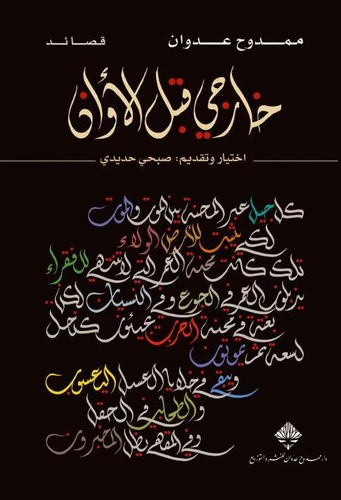 ممدوح عدوان
قصائد
خارجي قبل الأوان
اختيار وتقديم: صبحي حديدي
كل جيل عبر المحنة بين الموت والموت
لكي يثبت للأرض الولاء
تلك كانت محنة العمر التي لا تنتهي للفقراء
يذبل العمر في الجوع وفي التنسيك لكن
بغتة في محنة الحرب يجيئون كنحل
لسعة ثم يموتون
ويبقى في خلايا العسل اليعسوب
والطحلب في الحقل
وفي المقهى يظل المخبرون
دار ممدوح عدوان للنشر والتوزيع